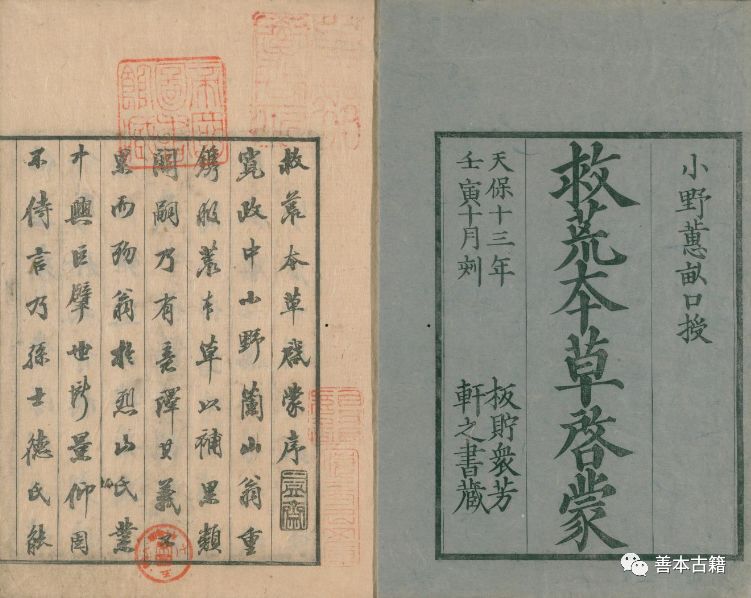 小野蕙畝口授
救荒本草啓蒙
天保十三年
壬寅十月刻
板貯衆芳
軒之書藏
救荒本草啓蒙序
寛政中小野蘭山翁重
鐫救荒本草以補類
嗣乃有譯其義
果而歿翁於烈山氏業
中興巨擘世所景仰固
不待言乃孫士徳氏能
善本古籍